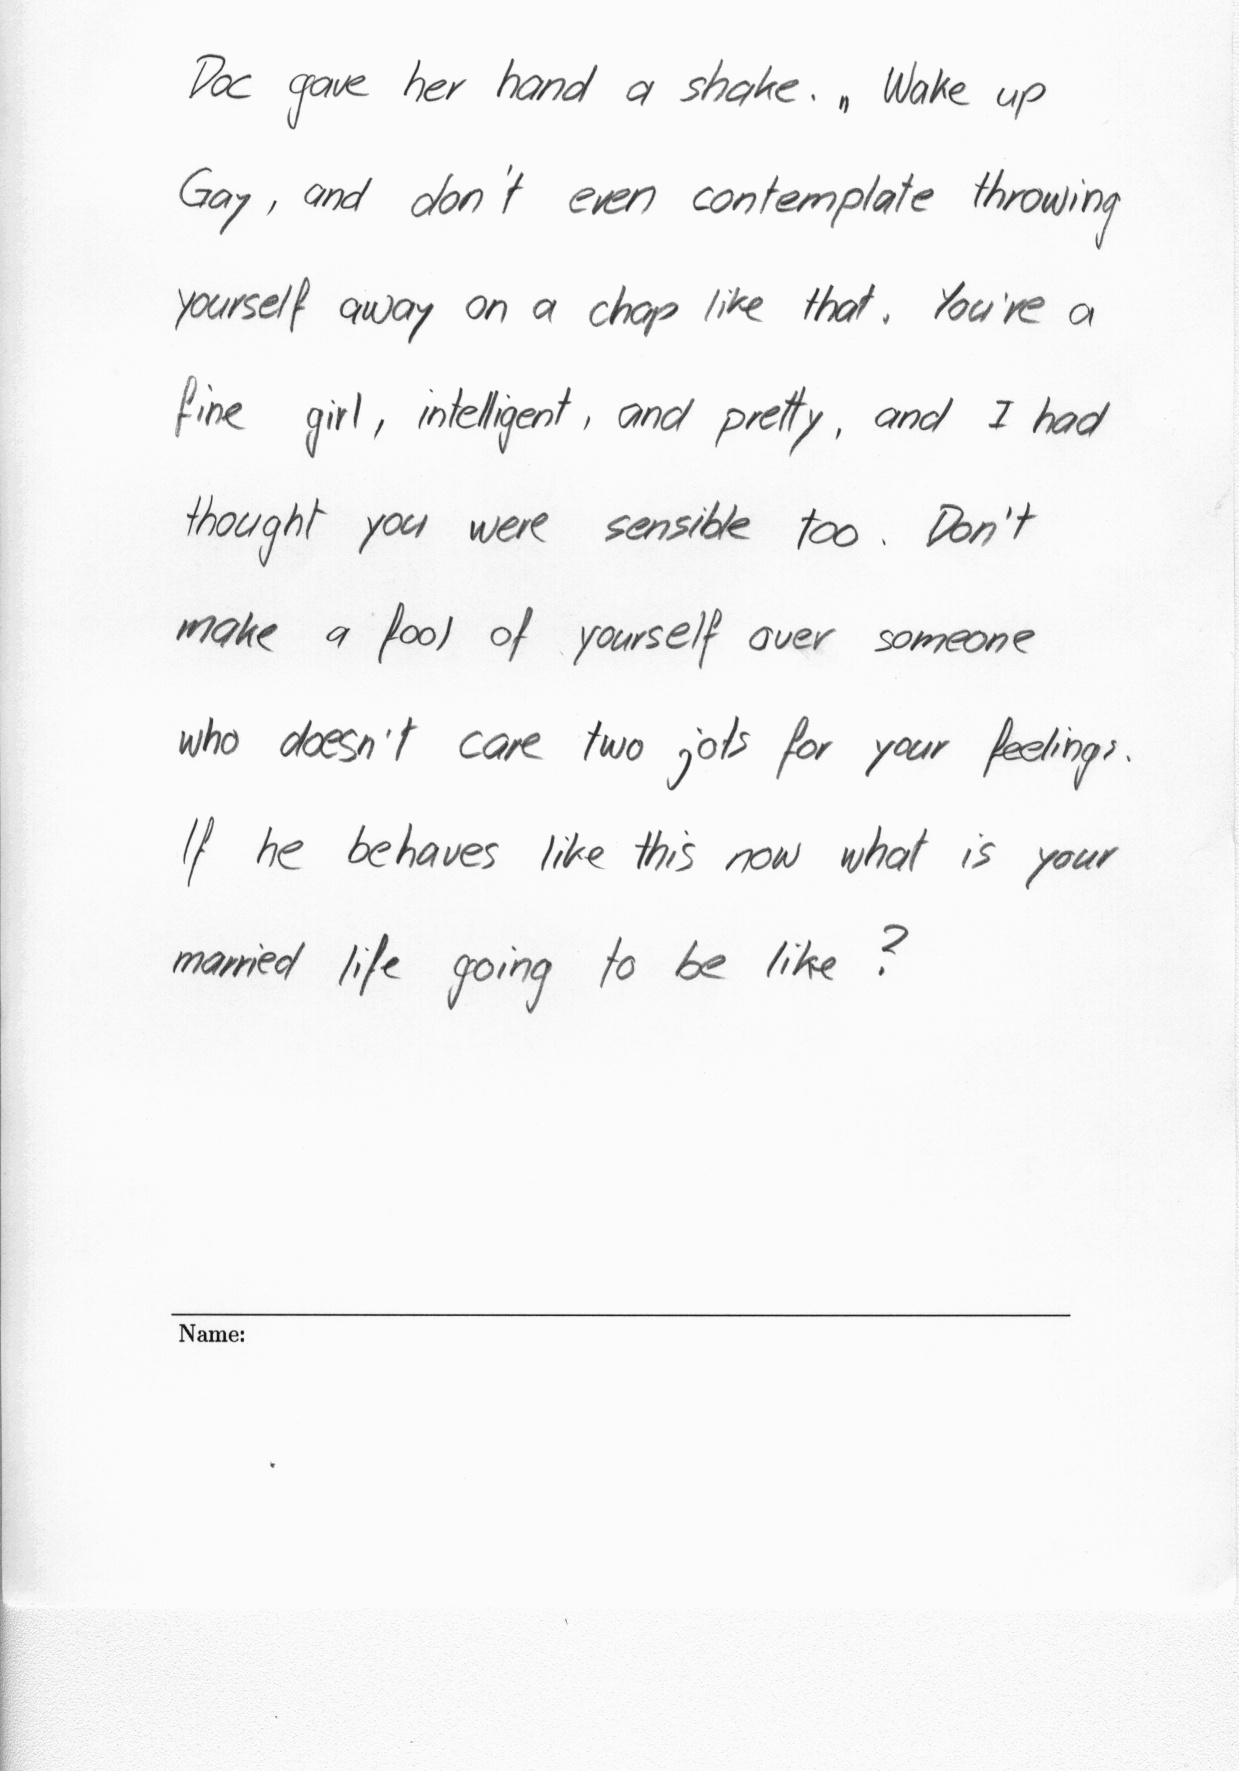 Doc gave her hand a shake. „Wake up
Gay, and don't even contemplate throwing
yourself away on a chap like that. You're a
fine girl, intelligent, and pretty, and I had
thought you were sensible too. Don't
make a fool of yourself over someone
who doesn't care two jots for your feelings.
If he behaves like this now what is your
married life going to be like?
Name: